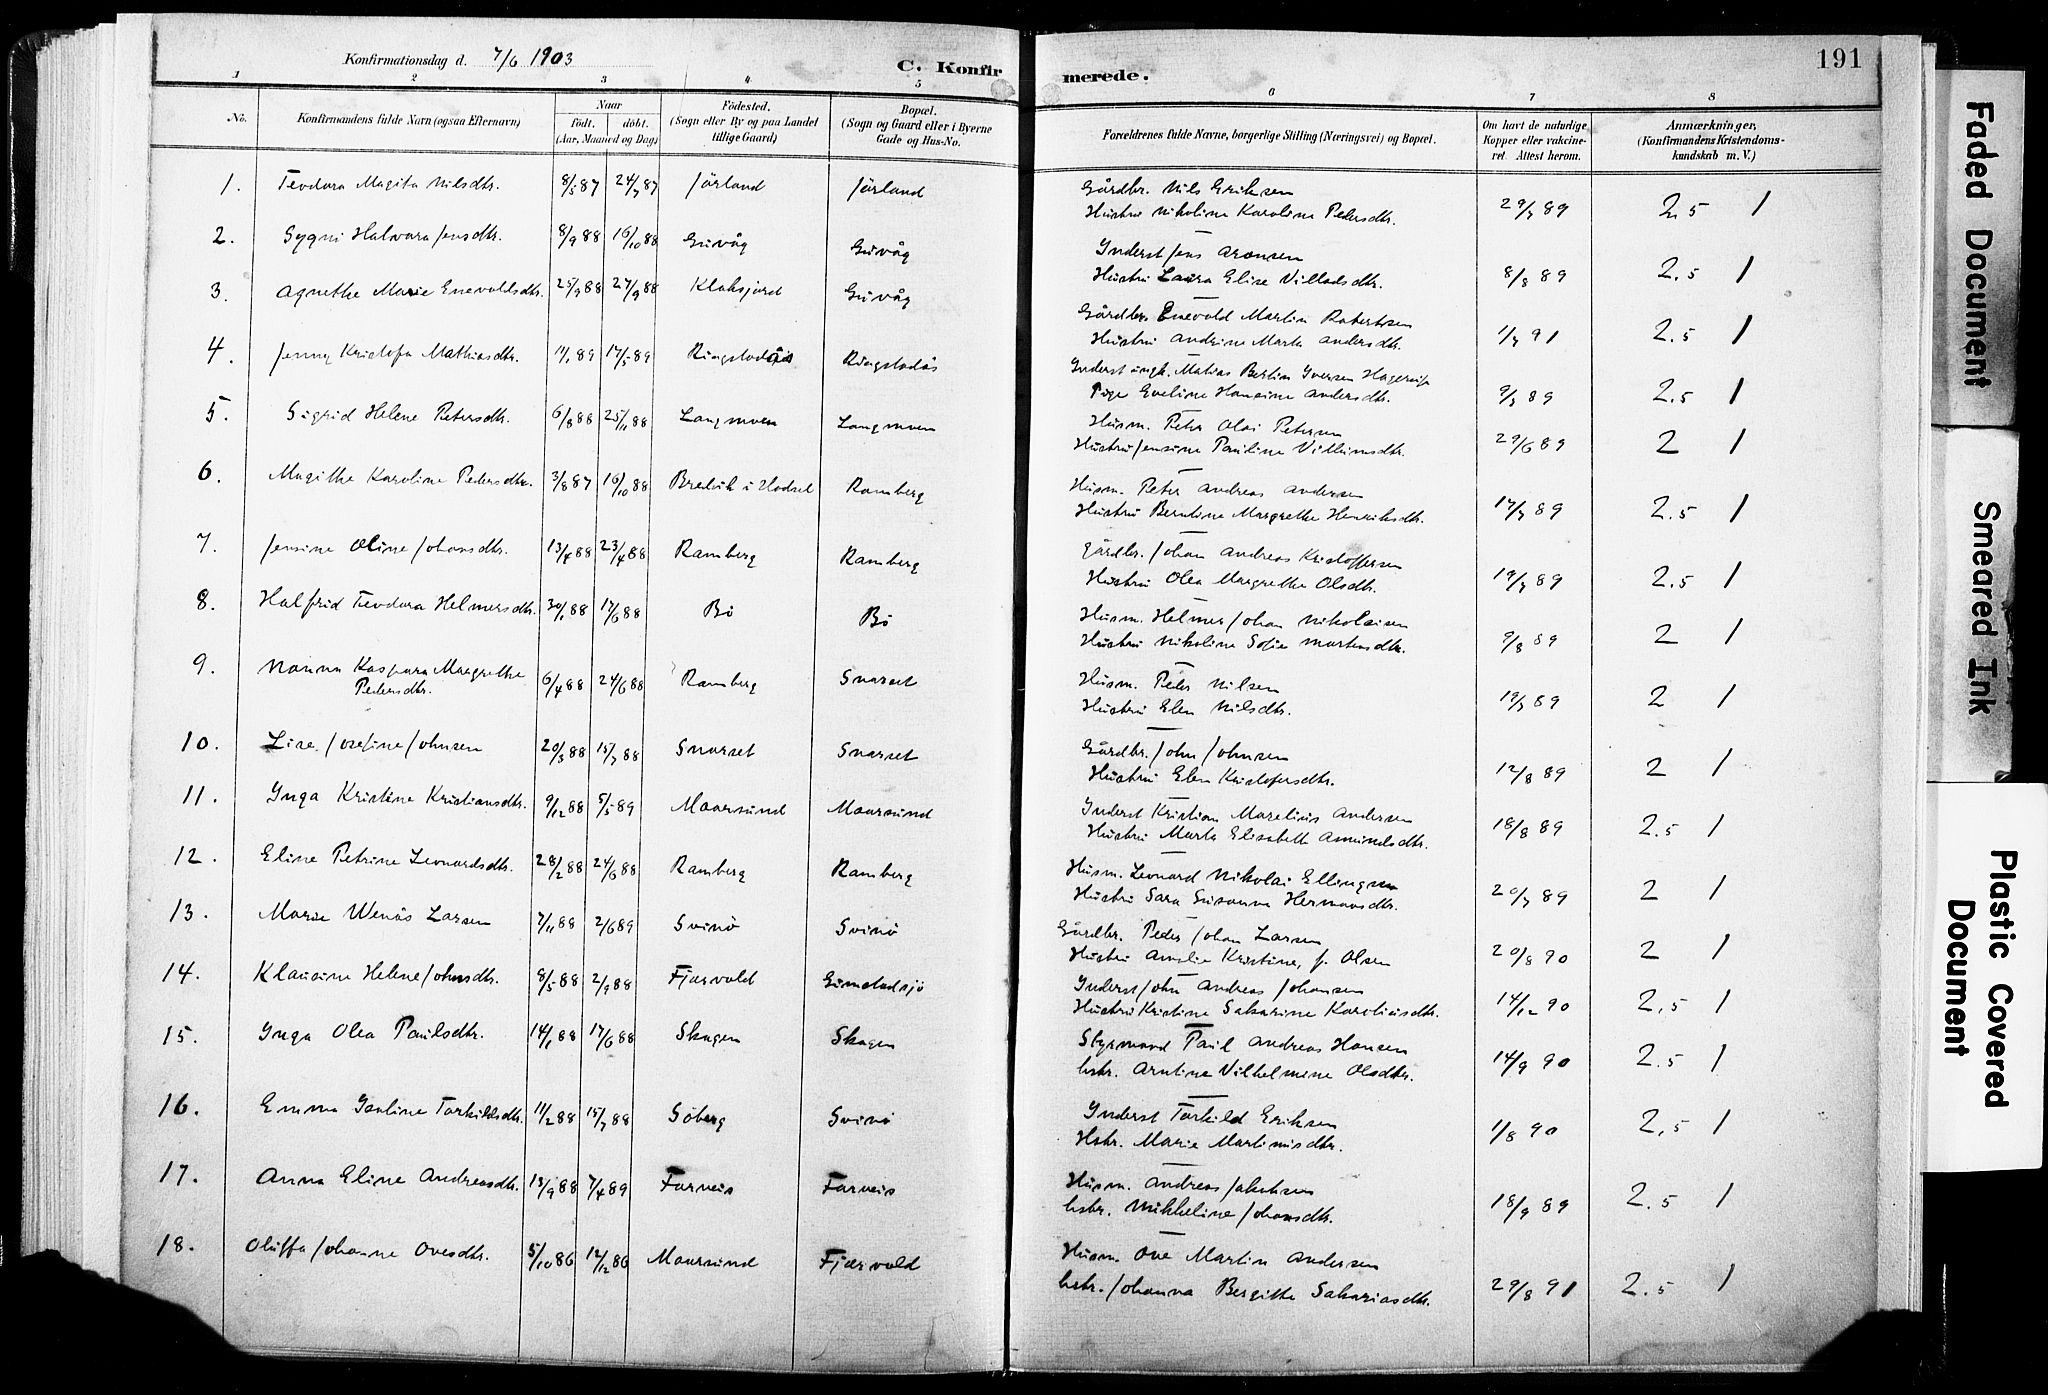 Konfirmationsdag d. 7/6 1903
C. Konfirmerede.
191
1 2 3 4 5 6 7 8
No. Konfirmandens fulde Navn (ogsaa Efternavn) Naar födt. döbt. (Aar, Maaned og Dag) Födested. (Sogn eller By og paa Landet tillige Gaard) Bopæl. (Sogn og Gaard eller i Byerne Gade og Hus-No. Forældrenes fulde Navne, borgerlige Stilling (Næringsvei) og Bopæl. Om havt de naturlige Kopper eller vakcineret. Attest herom. Anmærkninger, (Konfirmandens Kristendomskundskab m. V.)
1. Teodora Magita Nilsdtr. 8/5 87 24/7 87 Jörland Jörland Gårdbr. Nils Eriksen
Hustru Nikoline Karoline Pedersdtr. 29/7 89 2.5 1
2. Sygni Halvara Jensdtr. 8/9 88 16/10 88 Guvåg Guvåg Inderst Jens Aronsen
Hustru Laura Elise Villadsdtr. 8/8 89 2.5 1
3. Agnethe Marie Enevoldsdtr. 25/9 88 27/9 88 Klaksjord Guvåg Gårdbr. Enevold Martin Robertsen
Hustru Andrine Marta Andersdtr. 1/7 91 2.5 1
4. Jenny Kristofa Mathiasdtr. 11/1 89 17/5 89 Ringstadås Ringstadås Inderst ungk. Matias Bertin Iversen
Pige Eveline Hansine Andersdtr. 9/7 89 2.5 1
5. Sigrid Helene Petersdtr. 6/8 88 25/11 88 Langmoen Langmoen Husm. Peter Olai Petersen
Hustru Jensine Pauline Villumsdtr. 29/6 89 2 1
6. Magithe Karoline Pedersdtr. 3/8 87 16/10 88 Bredvik i Hadsel Ramberg Husm. Peter Andreas Andersen
Hustru Berntine Margrethe Henriksdtr. 17/7 89 2.5 1
7. Jensine Oline Johansdtr. 13/4 88 23/4 88 Ramberg Ramberg Gårdbr. Johan Andreas Kristoffersen
Hustru Olea Margrethe Olsdtr. 19/7 89 2.5 1
8. Halfrid Teodora Helmersdtr. 30/1 88 17/6 88 Bö Bö Husm. Helmer Johan Nikolaisen
Hustru Nikoline Sofie Mortensdtr. 9/8 89 2 1
9. Nanna Kaspara Margrethe
Pedersdtr. 6/4 88 24/6 88 Ramberg Snarset Husm. Peder Nilsen
Hustru Elen Nilsdtr. 19/7 89 2 1
10. Lise Josefine Johnsen 20/3 88 15/7 88 Snarset Snarset Gårdbr. John Johnsen
Hustru Elen Kristofersdtr. 12/8 89 2 1
11. Inga Kristine Kristiansdtr. 9/12 88 5/5 89 Maarsund Maarsund Inderst Kristian Marelius Andersen
Hustru Marta Elisabeth Amundsdtr. 18/8 89 2.5 1
12. Eline Petrine Leonardsdtr. 28/2 88 24/6 88 Ramberg Ramberg Husm. Leonard Nikolai Ellingsen
Hustru Sara Susanna Hermansdtr. 20/7 89 2 1
13. Marie Wenås Larsen 7/11 88 2/6 89 Svinö Svinö Gårdbr. Peder Johan Larsen
Hustru Amalie Kristine, f. Olsen 20/8 90 2 1
14. Klausine Helene Johnsdtr. 8/5 88 2/9 88 Fjærvold Gimstadsjö Inderst John Andreas Johansen
Hustru Kristine Sakarine Karoliusdtr. 14/12 90 2.5 1
15. Inga Olea Paulsdtr. 14/1 88 17/6 88 Skagen Skagen Styrmand Paul Andreas Hansen
hstr. Arntine Vilhelmine Olsdtr. 14/9 90 2.5 1
16. Emma Isaline Torkildsdtr. 11/2 88 15/7 88 Söberg Svinö Inderst Torkild Eriksen
Hstr. Marie Martinusdtr. 1/8 90 2.5 1
17. Anna Eline Andreasdtr. 13/9 88 7/4 89 Forneis Forneis Husm. Andreas Jakobsen
hstr. Mikkeline Johansdtr. 18/9 89 2.5 1
18. Oluffa Johanne Ovesdtr. 5/10 86 12/12 86 Maarsund Fjærvold Husm. Ove Martin Andersen
hstr. Johanna Bergithe Sakariasdtr. 29/8 91 2.5 1
Faded Document
Smeared Ink
Plastic Covered
Document